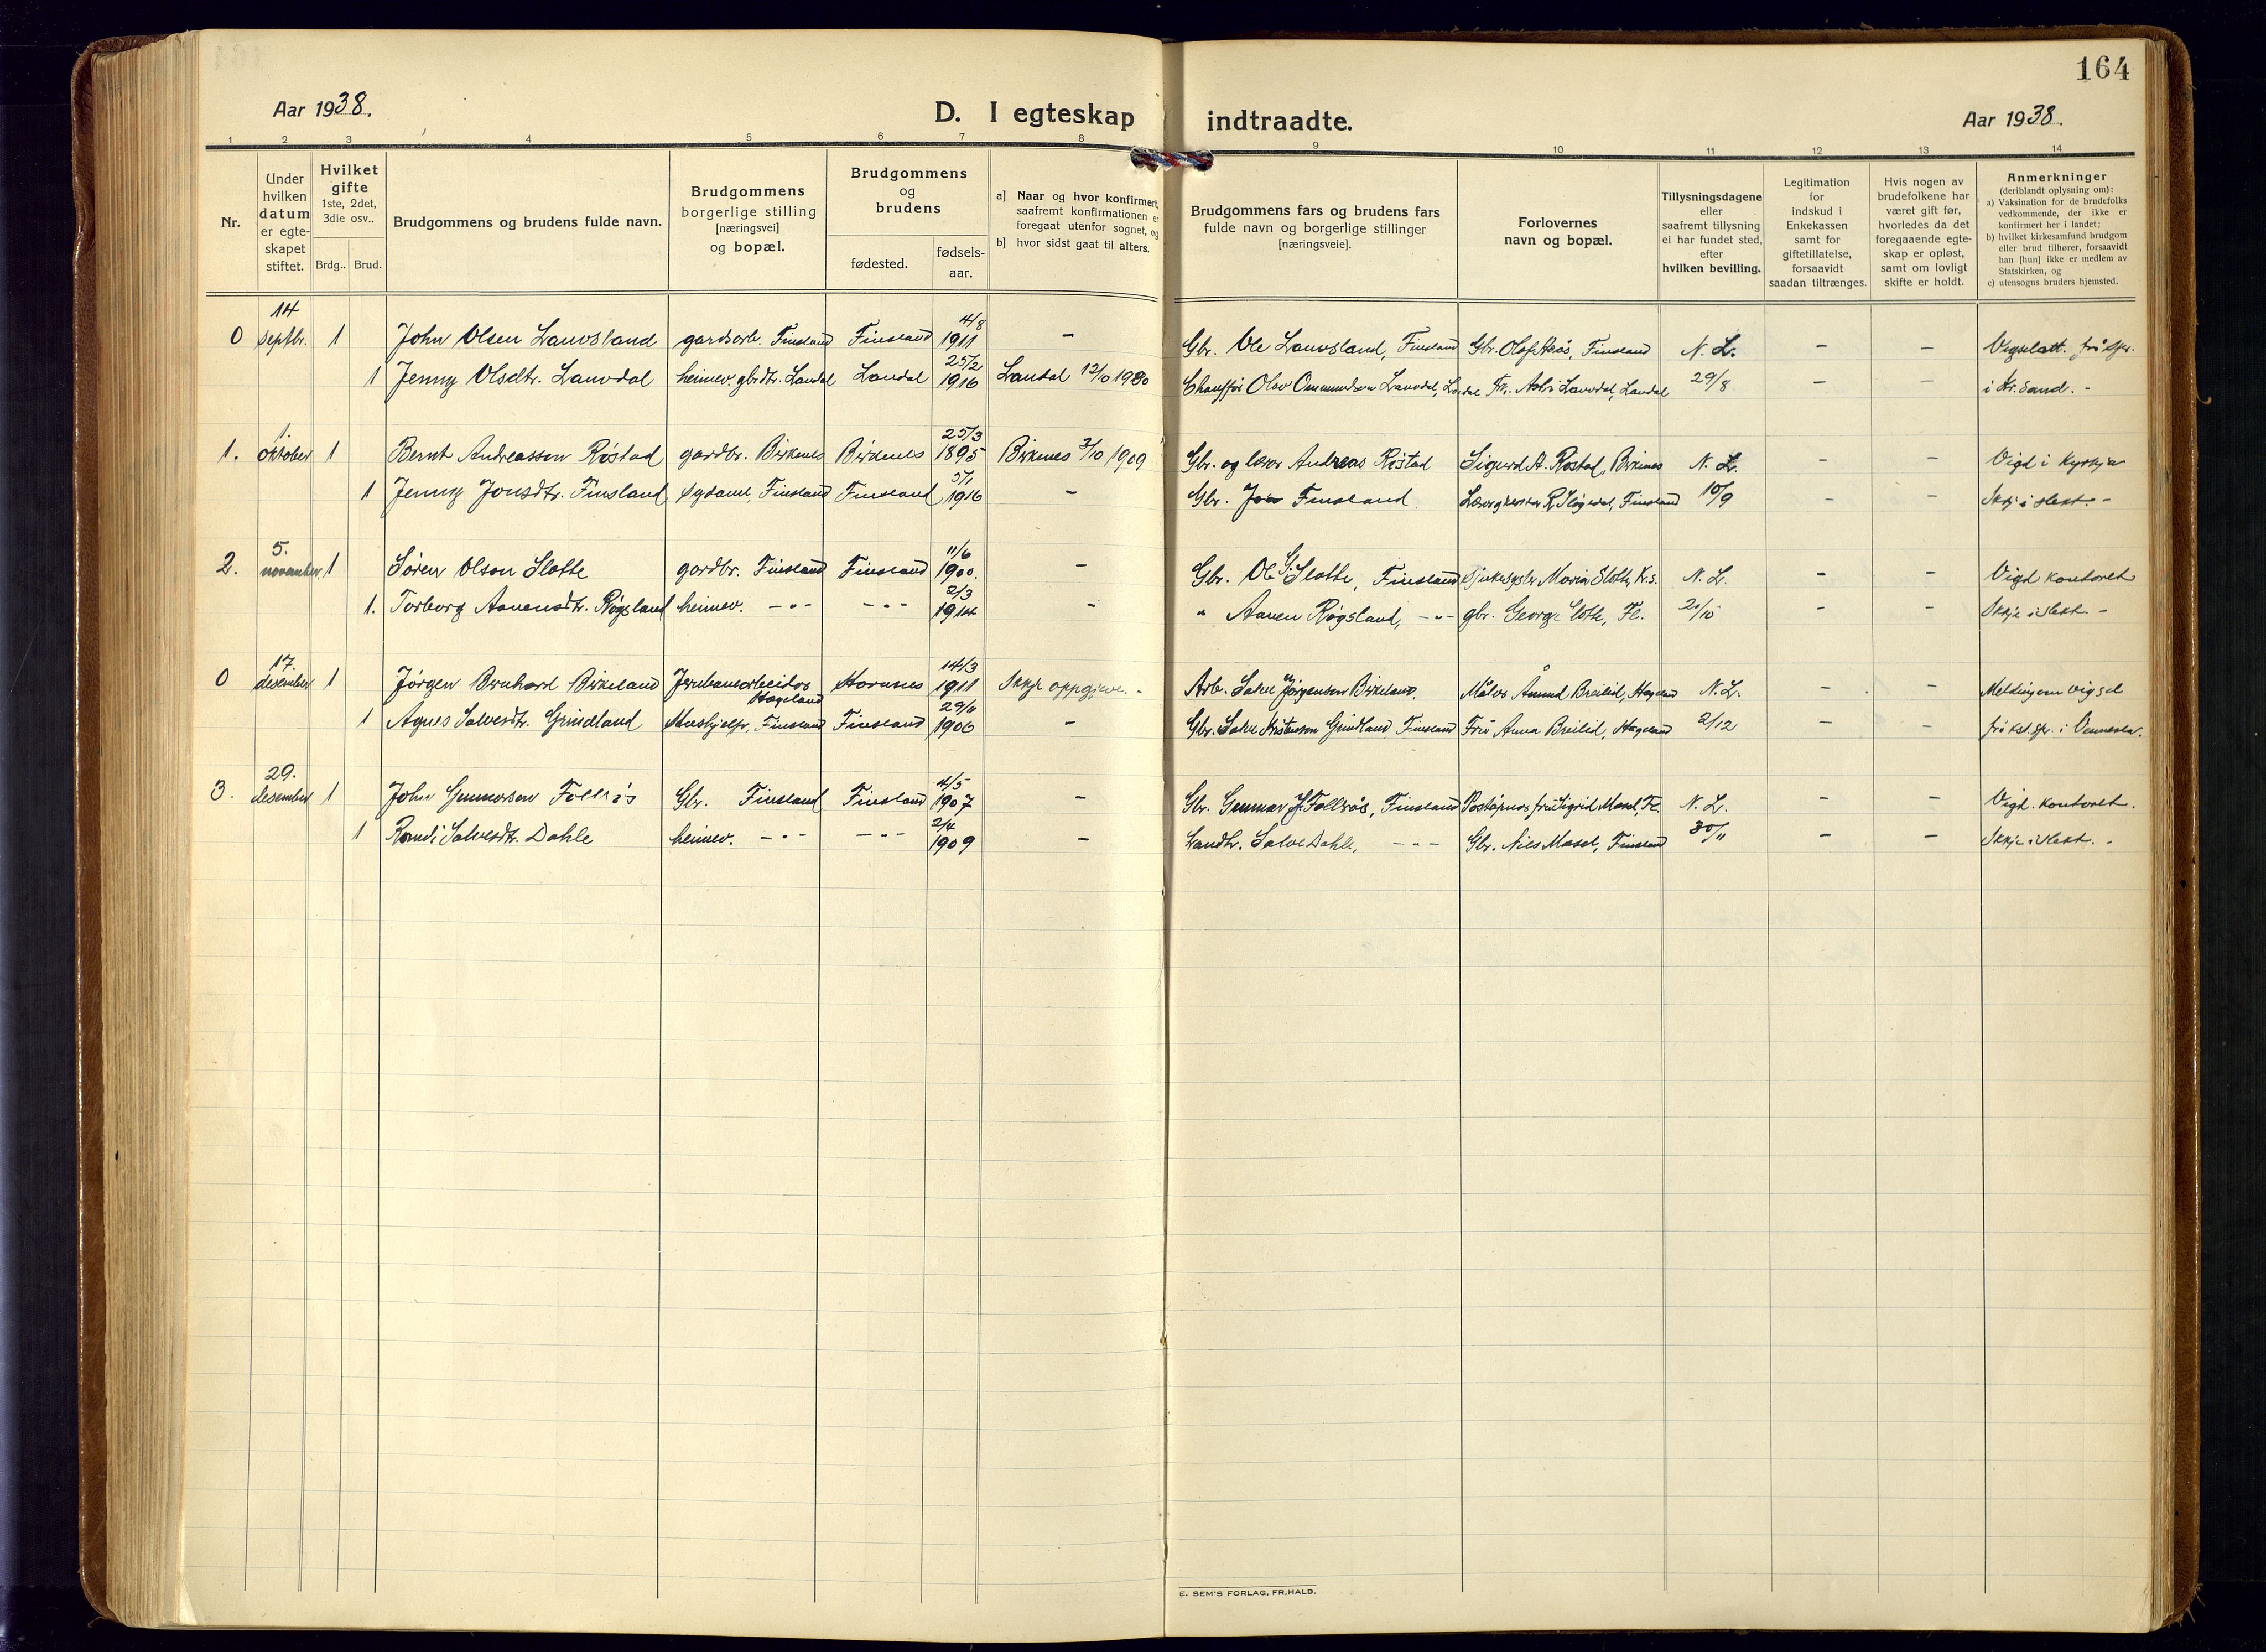 164
Aar 1938.
D. I egteskap indtraadte.
Aar 1938.
1 2 3 4 5 6 7 8 9 10 11 12 13 14
Nr.
Under hvilken datum er egte-skapet stiftet.
Hvilket gifte 1ste, 2det, 3die osv..
Brdg.. Brud.
Brudgommens og brudens fulde navn.
Brudgommens borgerlige stilling [næringsvei] og bopæl.
Brudgommens og brudens
fødested. fødsels-aar.
a] Naar og hvor konfirmert, saafremt konfirmationen er foregaat utenfor sognet, og
b] hvor sidst gaat til alters.
Brudgommens fars og brudens fars fulde navn og borgerlige stillinger [næringsveie].
Forlovernes navn og bopæl.
Tillysningsdagene eller saafremt tillysning ei har fundet sted, efter hvilken bevilling.
Legitimation for indskud i Enkekassen samt for giftetillatelse, forsaavidt saadan tiltrænges.
Hvis nogen av brudefolkene har været gift før, hvorledes da det foregaaende egte-skap er opløst, samt om lovligt skifte er holdt.
Anmerkninger (deriblandt oplysning om):
a) Vaksination for de brudefolks vedkommende, der ikke er konfirmert her i landet;
b) hvilket kirkesamfund brudgom eller brud tilhører, forsaavidt han [hun] ikke er medlem av Statskirken, og
c) utensogns bruders hjemsted.
0 14 septbr. 1 John Olsen Lauvsland gardsarb. Finsland Finsland 4/8 1911 – Gbr. Ole Lauvsland, Finsland Gbr. Olaf Aaås, Finsland N. L. – – Vigselatt. frå spr.
1 Jenny Olsdtr. Lauvdal heimev. gbrdtr. Laudal Laudal 25/2 1916 Laudal 12/10 1930 Chauffør Olav Ommundsen Lauvdal, Laudal Frk. Astri Lauvdal, Laudal 29/8 – – i Kr.sand. -
1. 1. oktober 1 Bernt Andreassen Røstad gardbr. Birkenes Birkenes 25/3 1895 Birkenes 3/10 1909 Gbr. og lærar Andreas Røstad Sigurd A. Røstad, Birkenes N. L. – – Vigd i kyrkja
1 Jenny Jonsdtr. Finsland sydame, Finsland Finsland 5/1 1916 – Gbr. Jon Finsland Finsland 10/9 – – Skyl i slekt. -
2. 5. november 1 Søren Olsen Slotte gardbr. Finsland Finsland 11/6 1900. – Gbr. Ole S. Slotte, Finsland Sjukesystr. Maria Slotte, Kr.s. N. L. – – Vigd kontoret
1. Torborg Aanensdtr. Røgsland heimev. -"- -"- 2/3 1914 – " Aanen Røgsland, -"- gbr. George Slotte, Fl. 21/10 – – Ikkje i slekt. -
0 17. desember 1 Jørgen Bernhard Birkeland Jernbanearbeider Hægeland Hornnes 14/3 1911 Ikkje oppgjeve. - Arb. Salve Jørgenson Birkeland. Målar Åmund Breilid, Hægeland N. L. – – Melding om vigsel
1 Agnes Salvesdtr. Grindland Hushjelp, Finsland Finsland 29/6 1906 – Gbr. Salve Kristenson Grindland, Finsland Fru Anna Breilid, Hægeland 2/12 – – frå kst. spr. i Vennesla.
3. 29. desember 1 John Gunnarson Follerås Gbr. Finsland Finsland 4/5 1907 – Gbr. Gunnar J. Follerås, Finsland Postopnar fru Sigrid Mosel, Fl. N. L. – – Vigd. kontoret.
1 Randi Salvesdtr. Dahle heimev. -"- -"- 2/4 1909 – Landh. Salve Dahle, -"- Gbr. Nils Mosel, Finsland 30/11 – – Ikkje i slekt. -
E. SEM'S FORLAG, FR.HALD.